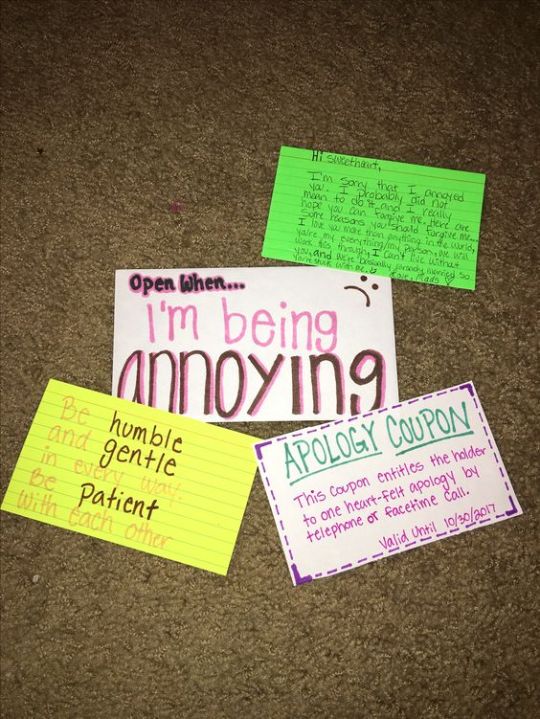 Hi sweetheart,
I'm sorry that I annoyed
you. I probably did not
mean to do it and I really
hope you can forgive me. Here are
some reasons you should forgive me...
I love you more than anything in the world,
you're my everything/my person, we will
work this through, I can't live without
you, and we're basically already married so
you're stuck with me.
Open When...
I'm being
annoying
Be humble
and gentle
in every way.
Be Patient
with each other
APOLOGY COUPON
This coupon entitles the holder
to one heart-felt apology by
telephone or facetime call.
Valid Until 10/30/2017